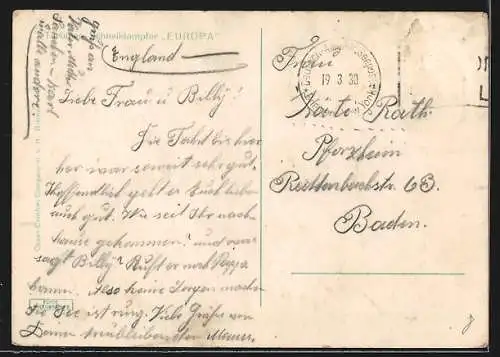 Schnelldampfer „EUROPA"
England
Liebe Frau u Billy!
Die Fahrt bis hier
her war soweit sehr gut.
Hoffentlich geht es Euch lieben
auch gut. Wie seit Ihr nach
hause gekommen? und was
sagt Billy? Ruft er nach Pappa
komm. Also keine Sorgen machen
die See ist ruhig. Viele Grüße von
Deinen treubleibenden Mann.
Gruß an
19.3.30
Frau
Käte Rath.
Pforzheim
Redtenbachstr. 63.
Baden.